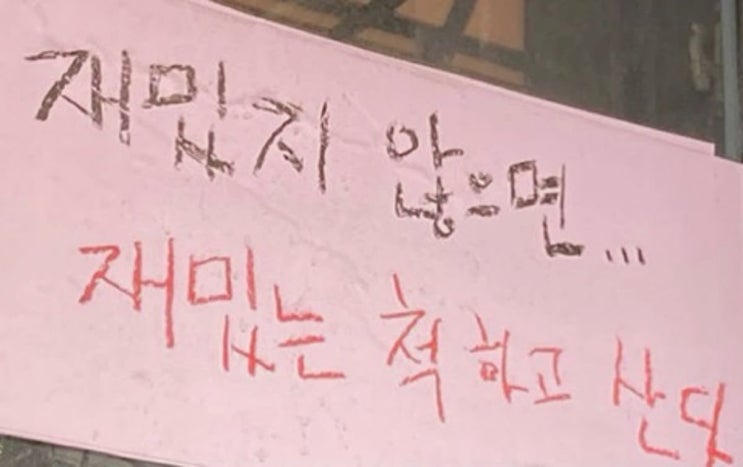 재밊지 않으면...
재밊는 척 하고 산다